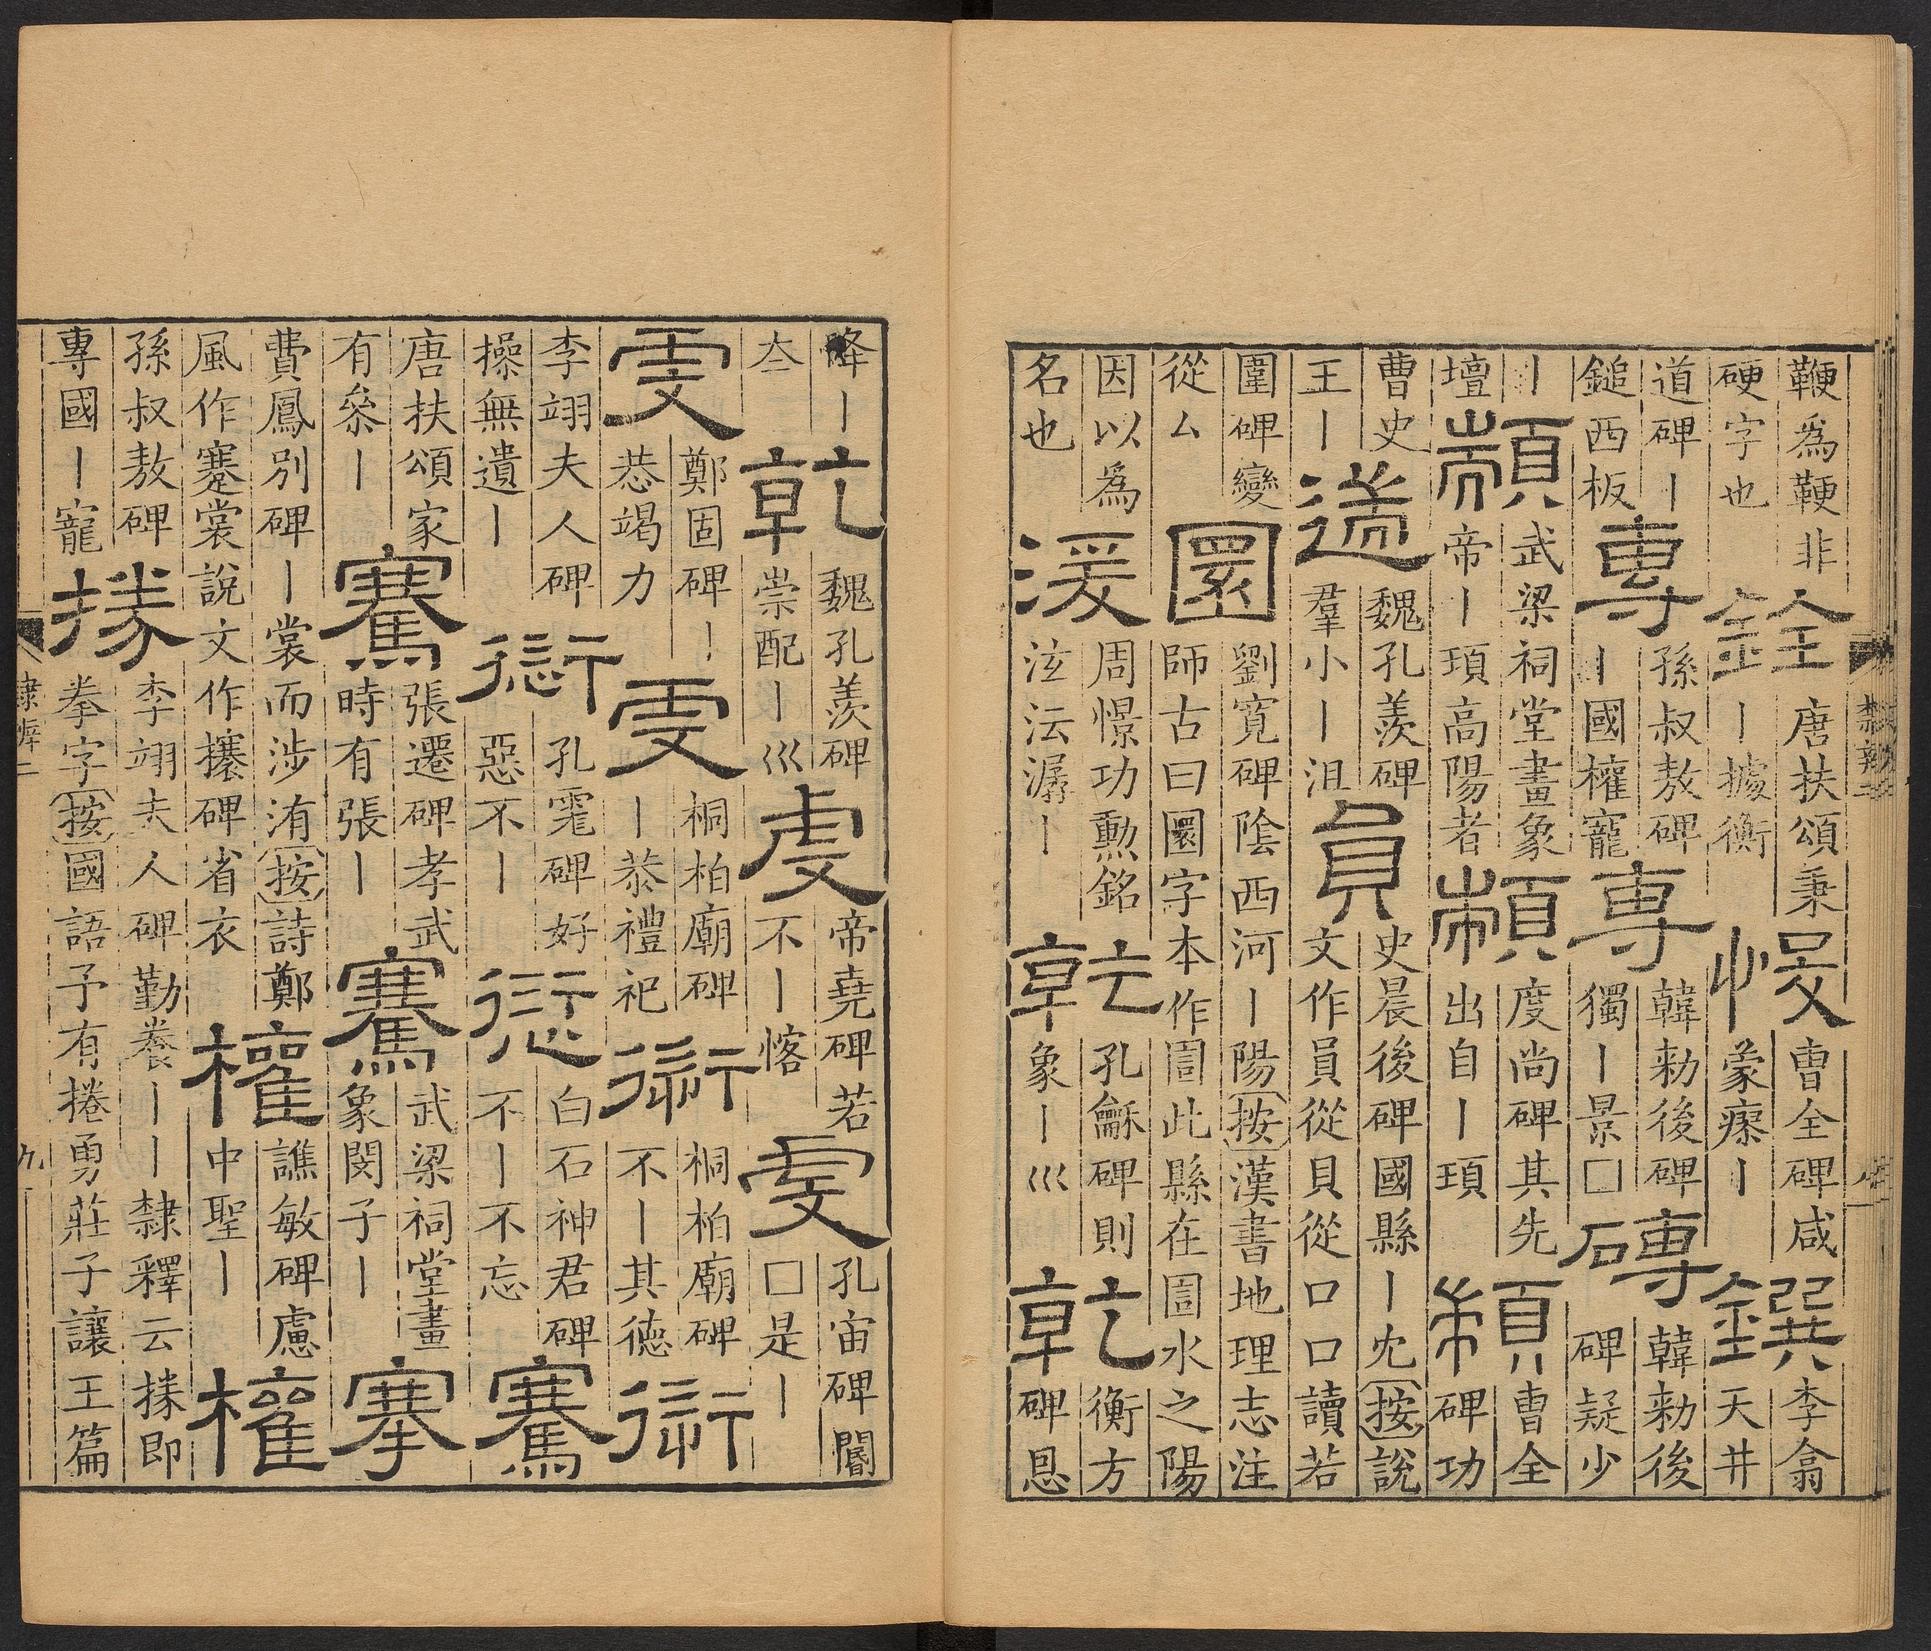 鞭為鞕非
硬字也
銓
唐扶頌秉
丨據衡
悛
曹全碑咸
蒙瘝丨
鐉
李翕
天井
道碑丨
鎚西板
專
孫叔敖碑
丨國權寵
專
韓勑後碑
獨丨景□
磚
韓勑後
碑疑少
丨
壇
顓
武梁祠堂畫象
帝丨頊高陽者
顓
度尚碑其先
出自丨頊
顓
曹全
碑功
曹史
王丨
遄
魏孔羨碑
羣小丨沮
員
史晨後碑國縣丨冘按說
文作員從貝從口口讀若
圍碑變
從厶
圜
劉寬碑陰西河丨陽按漢書地理志注
師古曰圜字本作圁此縣在圁水之陽
因以為
名也
湲
周憬功勳銘
泫沄潺丨
乾
孔龢碑則
象丨巛
乾
衡方
碑恩
隸辨二
降丨
夳
乾
魏孔羨碑
崇配丨巛
虔
帝堯碑若
不丨愘
虔
孔宙碑閽
□是丨
虔
鄭固碑丨
恭竭力
虔
桐柏廟碑
丨恭禮祀
衍
桐柏廟碑
不丨其德
衍
李翊夫人碑
操無遺丨
愆
孔碑好
惡不丨
愆
白石神君碑
不丨不忘
騫
唐扶頌家
有叅丨
騫
張遷碑孝武
時有張丨
騫
武梁祠堂畫
象閔子丨
搴
費鳳別碑丨裳而涉洧按詩鄭
風作蹇裳說文作攐碑省衣
權
譙敏碑慮
中聖丨
權
孫叔敖碑
專國丨寵
搼
李翊夫人碑勤養丨丨隸釋云搼即
拳字按國語予有捲勇莊子讓王篇
隸辨二
九